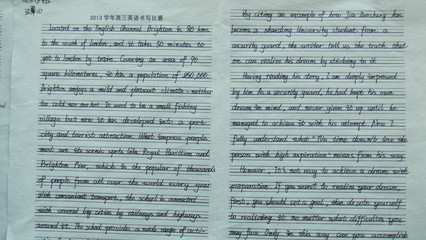 2013学年高三英语书写比赛
Located on the English Channel, Brighton is 80 kms
to the south of London, and it takes 50 minutes to
get to London by train. Covering an area of 90
square kilometers, it has a population of 250,000.
Brighton enjoys a mild and pleasant climate, neither
too cold nor too hot. It used to be a small fishing
village but now it has developed into a port
city and tourist attraction. What impress people
most are its scenic spots like Royal Pavilion and
Brighton Pier, which is popular of thousands
of people from all over the world every year.
With convenient transport, the school is connected
with several big cities by railways and highways
around it. The school provides a wide range of acti-
By citing an example of how Jia has
become a standing University student from a
security guard, the writer tell us the truth that
on can realize his dream by sticking to it.
Having reading his story, I am deeply impressed
by him. As a security guard, he had kept his own
dream in mind, and never given it up until he
managed to achieve it with his attempt. Now I
fully understand what "The time doesn't lose the
person with high aspiration" means from his way.
However, It's not easy to achieve a dream with
preparation. If you want to realize your dream,
first, you should set a goal, then devote yourself
to realizing it no matter what difficulties you
may face. Only in this way can you accomplish